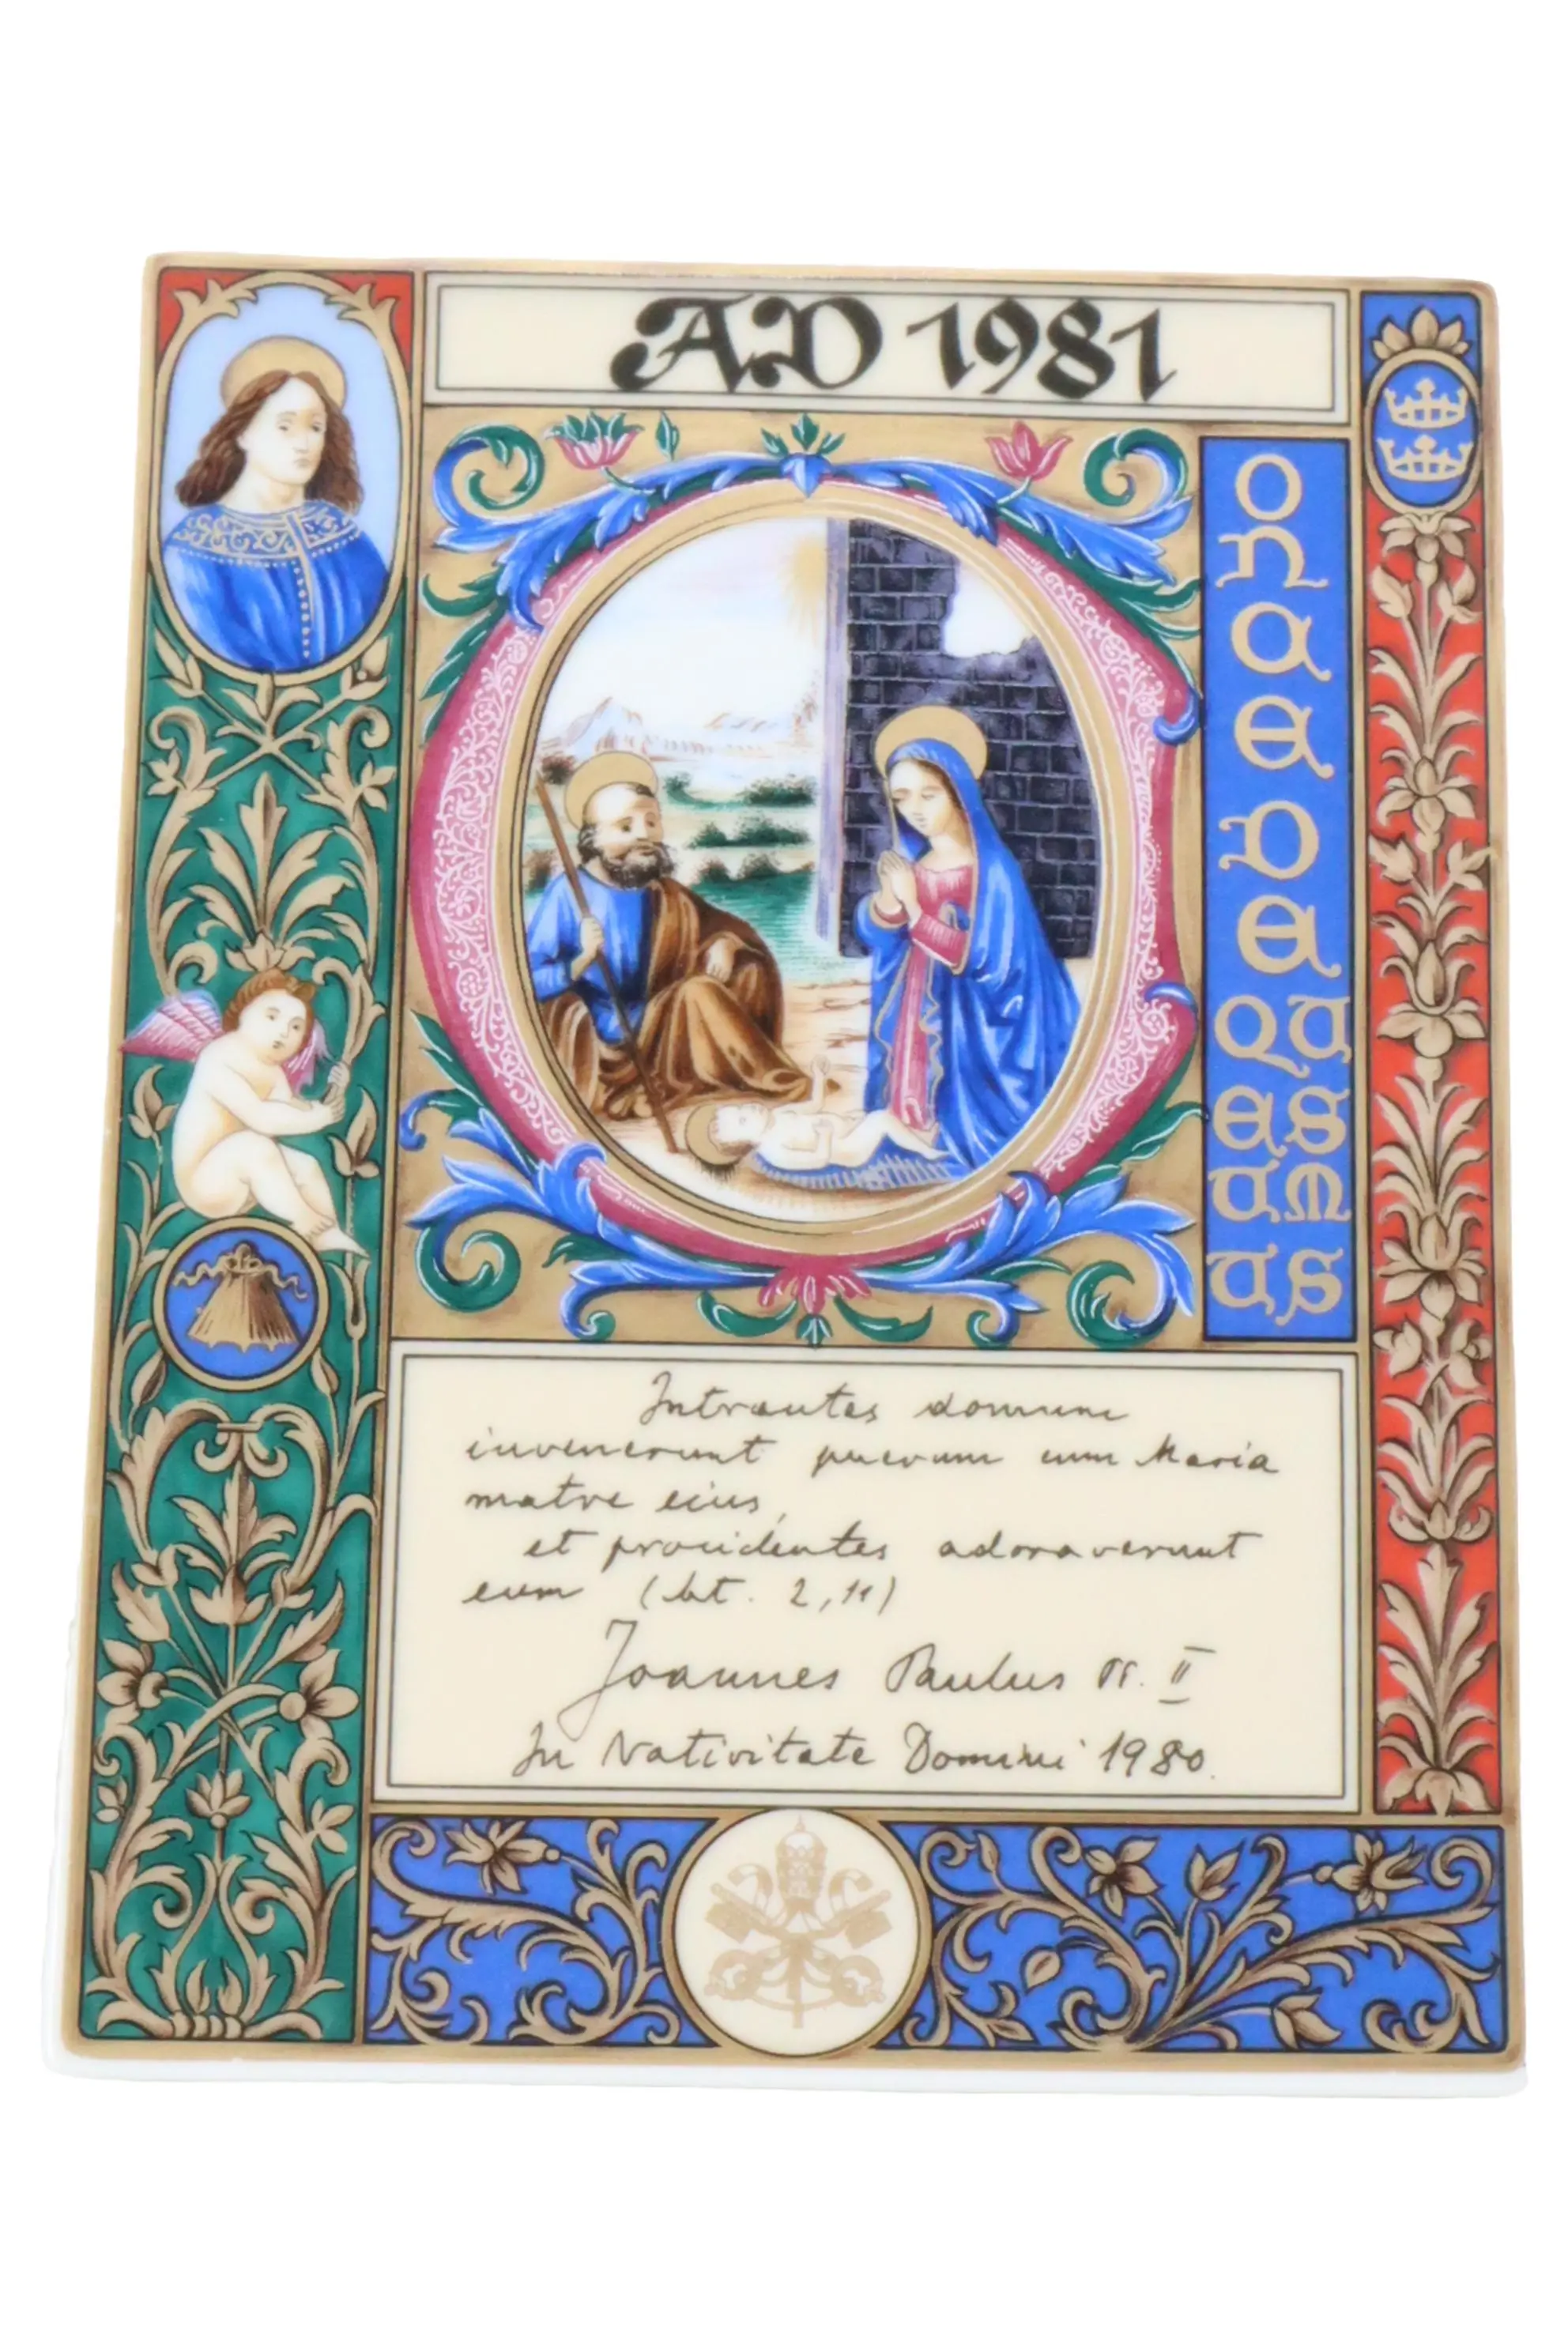 AD 1981
O
N
C
E
D
E
QU
ES
UM
US
Intrantes domum
invenerunt puerum cum Maria
matre eius,
et procidentes adoraverunt
eum (Mt. 2,11)
Joannes Paulus PP. II
In Nativitate Domini 1980.